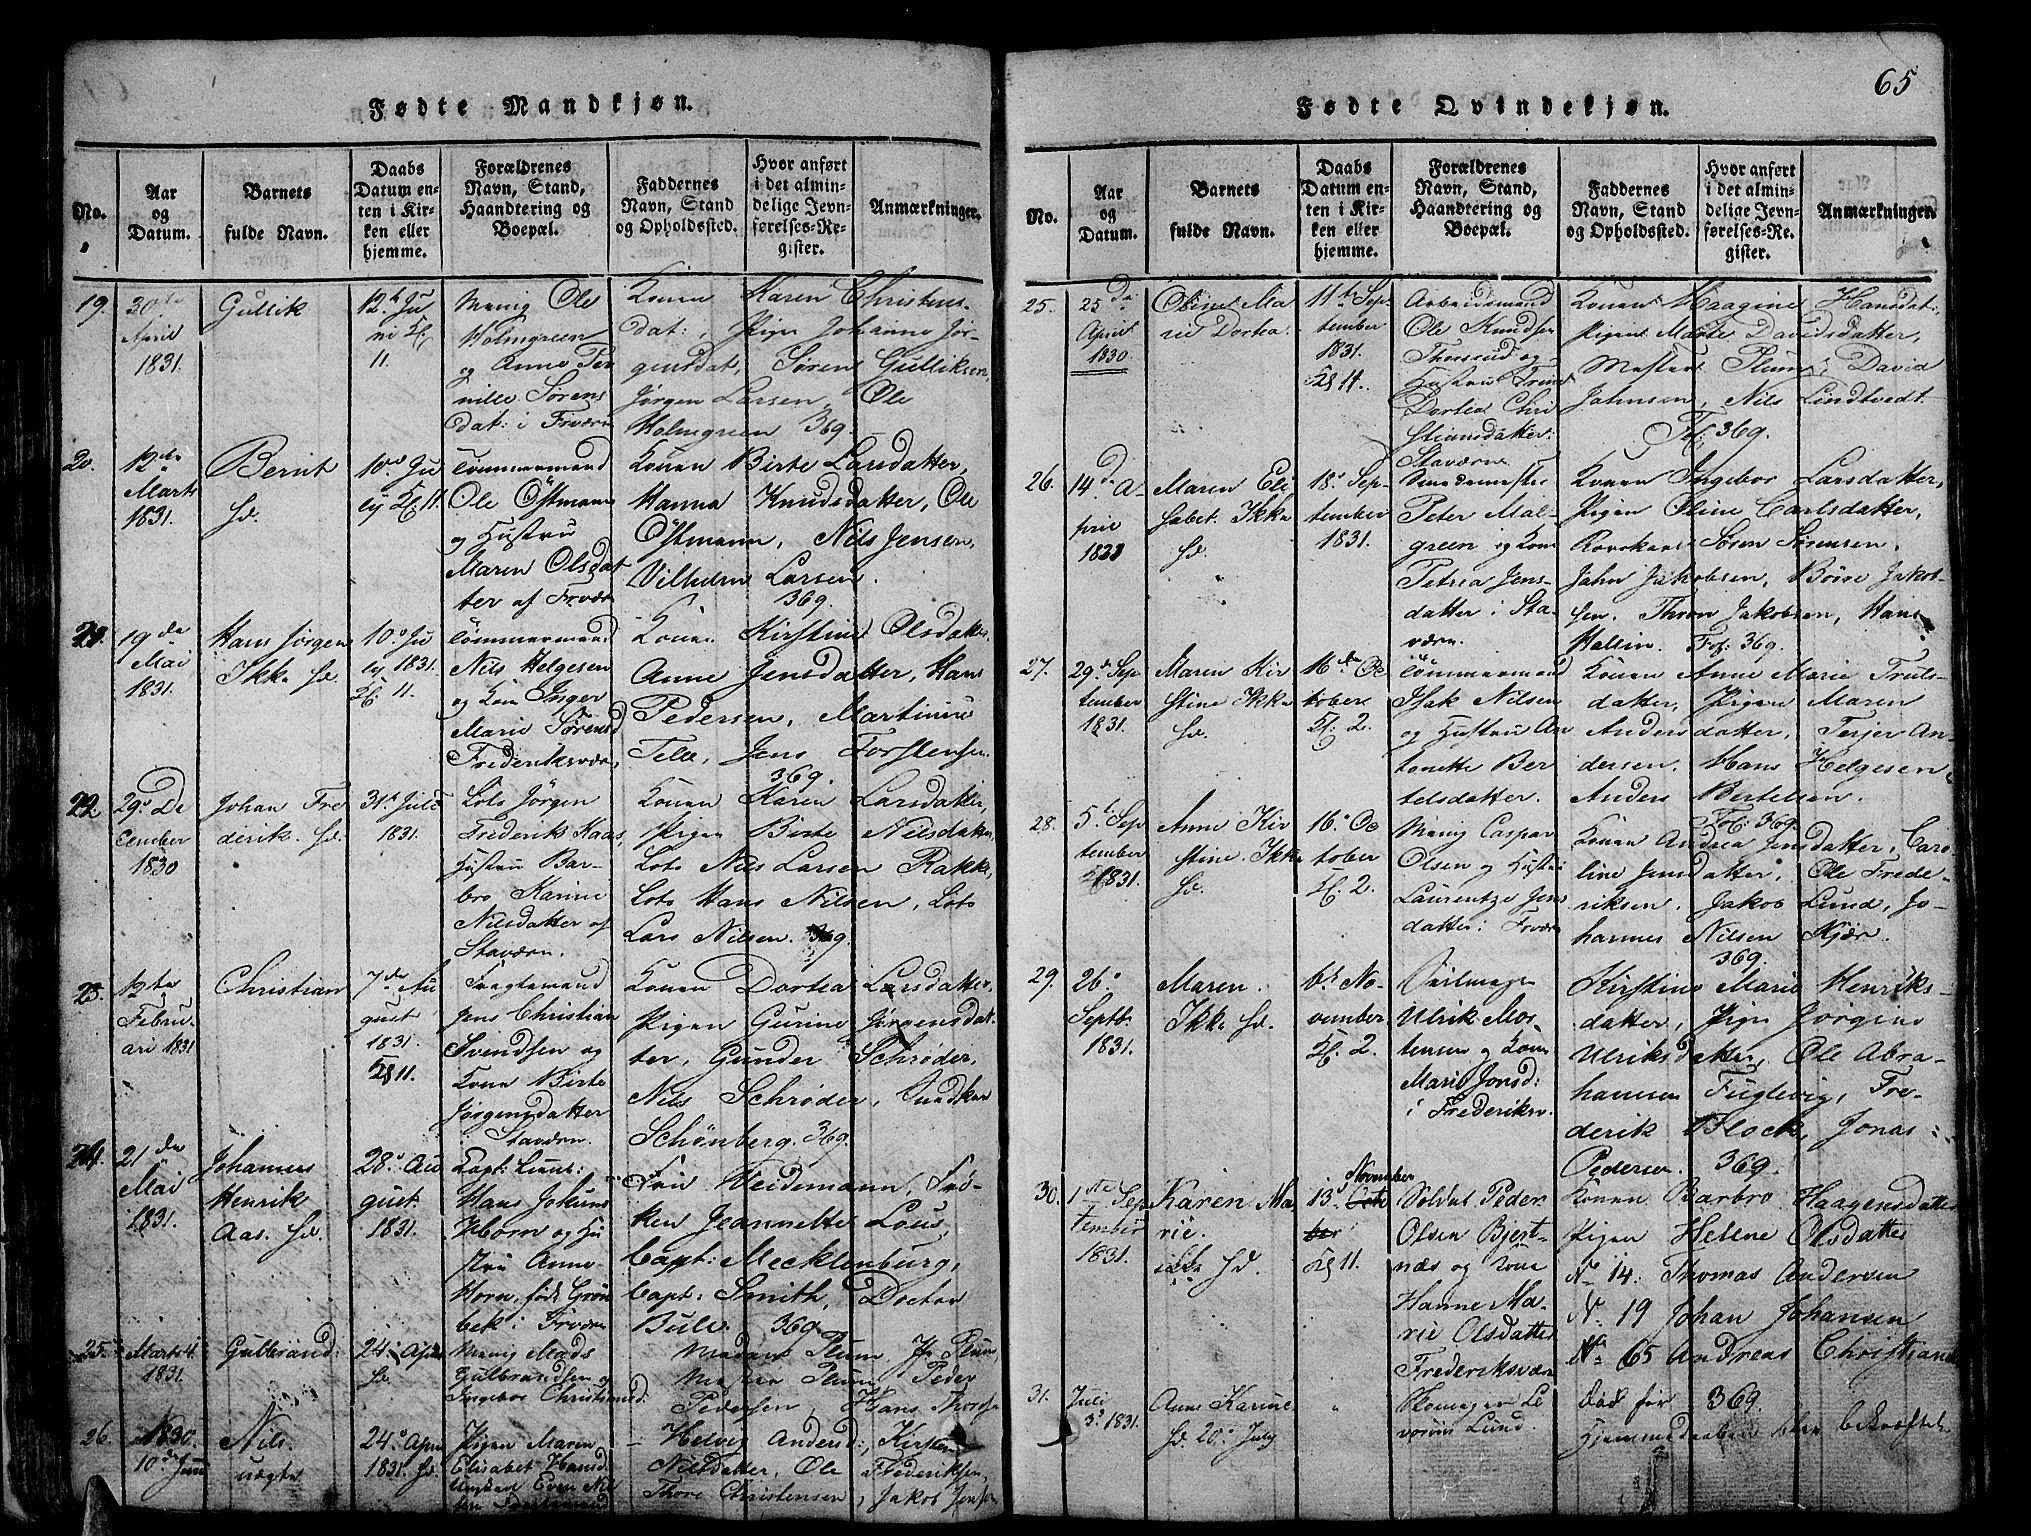 65
Fødte Mandkjøn.
No.
Aar
og
Datum.
Barnets
fulde Navn.
Daabs
Datum en-
ten i Kir-
ken eller
hjemme.
Forældrenes
Navn, Stand,
Haandtering og
Boepæl.
Faddernes
Navn, Stand
og Opholdssted.
Hvor anført
i det almin-
delige Jevn-
førelses-Re-
gister.
Anmærkninger.
19.
30
April
1831.
Gullik
12 Ju
ni Kl
11.
Ole
Holmgreen
og Anne Per
nille Sørens
dat: i Frværn
Konen Karen Christens
dat:, Pigen Johanne Jør-
gensdat, Søren Gulliksen,
Jørgen Larsen, Ole
Holmgreen 369.
20.
12te
Marts
1831.
Bernt
hd.
10 Ju
ly Kl. 11.
Tømmermand
Ole Östmann
og Hustru
Maren Olsdat
ter af Frværn
Konen Birte Larsdatter,
Hanna Knudsdatter, Ole
Östmann, Nils Jensen,
Vilhelm Larsen.
369.
21.
19de
Mai
1831.
Hans Jørgen
Ikke hd.
10 Ju
ly 1831.
Kl. 11.
Tømmermand
Nils Helgesen
og Kone Inger
Marie Sørensd
Frederiksværn
Konen Kirstine Olsdatter
Anne Jensdatter, Hans
Pedersen, Martinus
Telle, Jens Torstensen.
369.
22.
29 De
cember
1830
Johan Fre
derik. hd.
31 Juli
1831.
Lots Jørgen
Frederik Kaas,
Hustru Bar-
bro Karine
Nilsdatter af
Staværn.
Konen Karen Larsdatter,
Pigen Birte Nilsdatter
Lots Nils Larsen Rakke,
Lots Hans Nilsen, Lots
Lars Nilsen. 369.
23.
12te
Febru-
ari 1831
Christian
7de Au
gust
1831.
Kl 11.
Jens Christian
Svendsen og
Konen Birte
Jørgensdatter
i Staværn.
Konen Dortea Larsdatter,
Pigen Gurine Jørgensdat-
ter, Gunder Schrøder,
Nils Schrøder,
Schønberg. 369.
24.
21de
Mai
1831.
Johannes
Henrik
Aas. hd.
28 Au
gust
1831.
Capt: Lieut:
Hans Jokum
Horn og Hu
stru Anne
Horn, født Grøn
bek i Frværn
Fru Weidemann, Frø-
ken Jeannette Lous,
Capt: Mecklenburg,
Capt: Smith, Doctor
Bull. 369.
25.
Marts 4.
1831.
Gulbrand:
24 Apr
hd.
Mads
Gulbrandsen og
Ingebor Christensd.
Madam Plum
Plum, Peder
Pedersen, Hans
26.
1830.
10 Juni
Nils
uægte
24 Apr
1831. hd.
Pigen Maren
Elisabet Hansd.
Even Nil
sen
Helvig Andersd:, Kirsten
Nilsdatter, Ole Frederiksen,
Thore Christensen, Jakob Jensen
Fødte Qvindekjøn.
No.
Aar
og
Datum.
Barnets
fulde Navn.
Daabs
Datum en-
ten i Kir-
ken eller
hjemme.
Forældrenes
Navn, Stand,
Haandtering og
Boepæl.
Faddernes
Navn, Stand
og Opholdssted.
Hvor anført
i det almin-
delige Jevn-
førelses-Re-
gister.
Anmærkninger.
25.
25
April
1830.
Oline Ma
rie Dortea
11te Sep-
tember
1831.
Kl 11.
Arbeidsmand
Ole Knudsen
Thorsrud og
Hustru Trine
Dortea Chri
stiansdatter.
Staværn.
Konen Haagine Hansdat:
Pigen Marte Davidsdatter,
Mester Plum, David
Johnsen, Nils Lindtvedt.
Fol: 369.
26.
14de A-
pril
Maren Eli
sabet. Ikke
hd.
18 Sep-
tember
1831.
Peter Mal-
green og Kone
Petrea Jens-
datter i Sta-
værn.
Konen Ingebor Larsdatter,
Pigen Oline Carlsdatter,
Søren Sørensen.
John Jakobsen, Børre Jakob-
sen. Thron Jakobsen, Hans
Wallin. Fol: 369.
27.
29 Sep
tember
1831.
Maren Kir
stine Ikke
hd.
16de Oc
tober
Kl. 2.
Tømmermand
Isak Nilsen
og Hustru An
tonette Ber
telsdatter.
Konen Anne Marie Truls-
datter, Pigen Maren
Andersdatter, Terjer An-
dersen. Hans Helgesen
Anders Bertelsen.
Fol: 369.
28.
5 Sep
tember
1831.
Anne Kir
stine. Ikke
hd.
16 Oc
tober
Kl. 2.
Caspar
Olsen og Hustru
Laurentze Jens
datter: Frværn
Konen Andrea Jensdatter, Caro-
line Jensdatter, Ole Frede-
riksen. Jakob Lund, Jo-
hannes Nilsen Kjær.
369.
29.
26
Septb.
1831.
Maren.
Ikke hd.
6 No-
vember
Kl. 2.
Ulrik Mor-
tensen og Kone
Marie Jonsd:
i Frederiksv.
Kirstine Marie Henriks-
datter, Pige Jørgine
Ulriksdatter, Ole Abra-
hamsen Fuglevig, Fre-
derik Block, Jonas
Pedersen. 369.
30.
1ste Sep
tember
1831.
Karen Ma
rie.
ikke hd.
November
13
Kl 11.
Soldat Peder
Olsen Bjert-
næs og Kone
Hanne Ma-
rie Olsdatter
Frederiksværn
Konen Barbro Haagensdatter
Pigen Helene Olsdatter
No 14. Thomas Andersen
No 19 Johan Johansen
No 65 Andreas Christians
369.
31.
Juli
3 1831.
Anne Karine.
hd. 20 July
"
Skomager Le
vorin Lund.
død før
Hjemmedaaben blev bekræftet